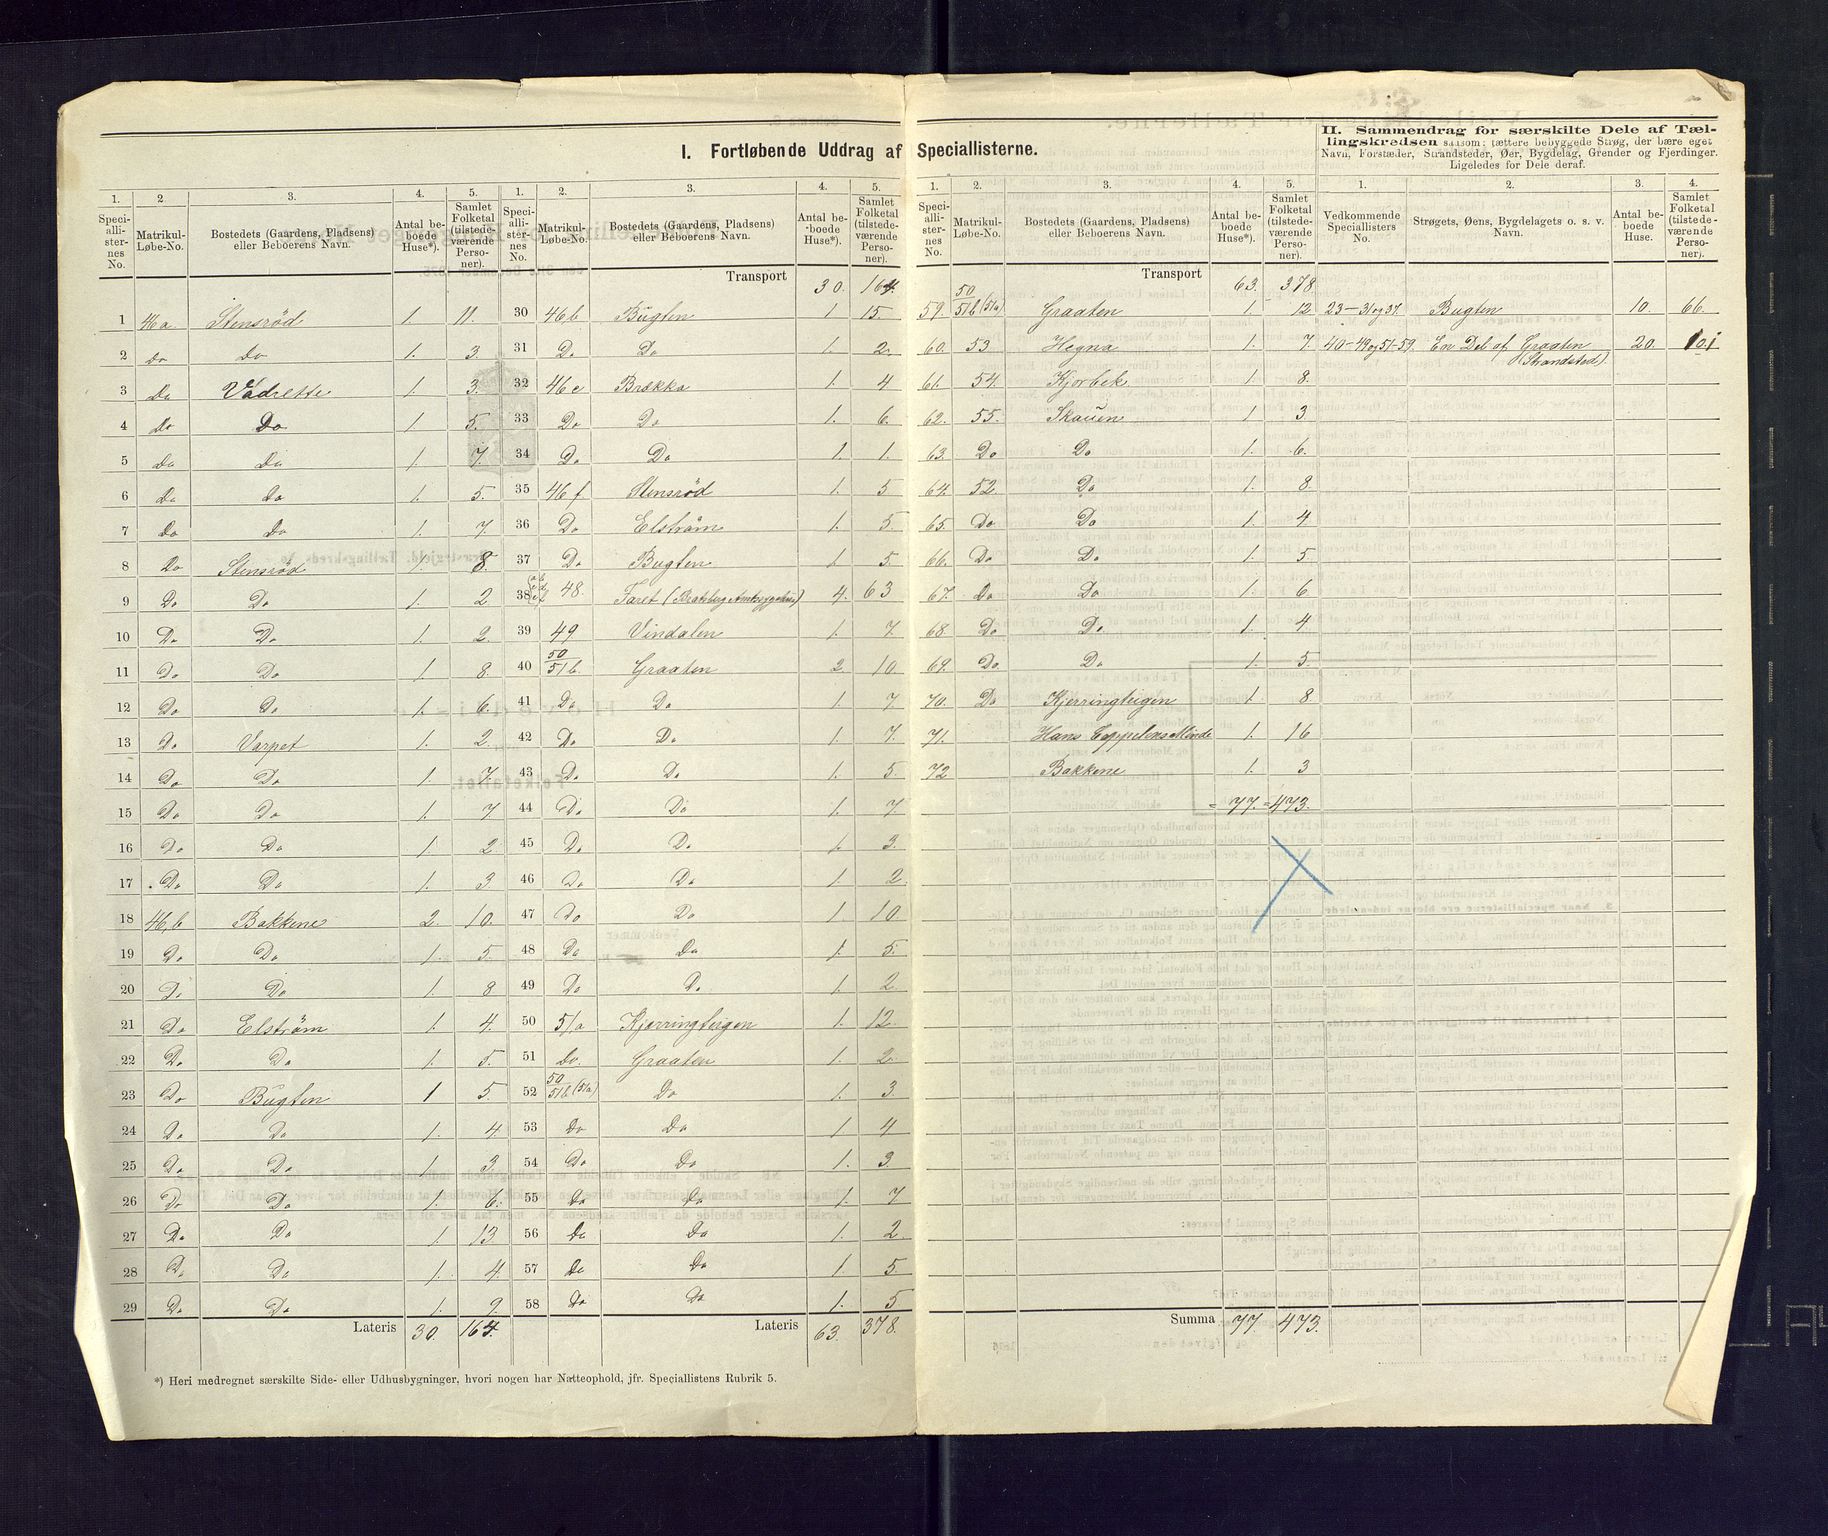 I. Fortløbende Uddrag af Speciallisterne.
II. Sammendrag for særskilte Dele af Tællingskredsen saasom: tættere bebyggede Strøg, der bære eget Navn, Forstæder, Strandsteder, Øer, Bygdelag, Grender og Fjerdinger. Ligeledes for Dele deraf.
1. 2. 3. 4. 5.
Speciallisternes No. Matrikul-Løbe-No. Bostedets (Gaardens, Pladsens) eller Beboerens Navn. Antal beboede Huse*). Samlet Folketal (tilstedeværende Personer).
1 46a Stensröd 1. 11.
2 Do Do 1. 3.
3 Do Vadrette 1. 3.
4 Do Do 1 5.
5 Do Do 1. 7.
6 Do Do 1. 5.
7 Do Do 1. 7.
8 Do Stensröd 1. 8.
9 Do Do 1. 2.
10 Do Do 1. 2.
11 Do Do 1 8.
12 Do Do 1. 6.
13 Do Varpet 1. 2.
14 Do Do 1 7.
15 Do Do 1. 7
16 Do Do 1. 2
17 Do Do 1. 3
18 46,b Bakkene 2. 10.
19 Do Do 1. 5.
20 Do Do 1. 8
21 Do Elström 1. 4.
22 Do Do 1. 5.
23 Do Bugten 1 5.
24 Do Do 1. 4.
25 Do Do 1 3.
26 Do Do 1. 6.
27 Do Do 1. 13.
28 Do Do 1. 4.
29 Do Do 1. 9.
Lateris 30 164.
1. 2. 3. 4. 5.
Speciallisternes No. Matrikul-Løbe-No. Bostedets (Gaardens, Pladsens) eller Beboerens Navn. Antal beboede Huse*). Samlet Folketal (tilstedeværende Personer).
Transport 30. 164.
30 46b Bugten 1 15.
31 Do Do 1. 2.
32 46e Brækka 1. 4
33 Do Do 1. 6.
34 Do Do 1. 1.
35 46f Stensröd 1. 5
36 Do Elström 1. 5.
37 Do Bugten 1. 5.
38 48. Faret (Bratsberg Amtssygehus) 4. 63
39 49 Vindalen 1. 7.
40 50/51b. Graaten 2. 10
41 Do Do 1. 7
42 Do Do 1. 7.
43 Do Do 1. 5.
44 Do Do 1. 7
45 Do Do 1. 3.
46 Do Do 1 2.
47 Do Do 1. 10.
48 Do Do 1. 5.
49 Do Do 1. 2.
50 51a Kjerringteigen 1. 12.
51 Do. Graaten 1. 2.
52 50/51b (51a) Do 1. 3.
53 Do Do 1. 4
54 Do Do 1. 3.
55 Do Do 1. 7
56 Do Do 1. 2.
57 Do Do 1. 5.
58 Do Do 1. 5
Lateris 63. 378.
1. 2. 3. 4. 5.
Speciallisternes No. Matrikul-Løbe-No. Bostedets (Gaardens, Pladsens) eller Beboerens Navn. Antal beboede Huse*). Samlet Folketal (tilstedeværende Personer).
Transport 63. 378
59. 50/51b (51a) Graaten 1. 12
60. 53 Hegna 1. 7.
61. 54. Kjorbek 1. 8.
62. 55. Skauen 1 3
63. Do Do 1. 6.
64. 52. Do 1. 8.
65. Do Do 1. 4
66. Do Do 1. 5
67. Do Do 1. 6
68. Do Do 1. 4
69. Do. Do 1. 5.
70. Do Kjerringteigen 1. 8
71. Hans Eppelens Minde 1. 16
72 Bakkene 1. 3
= 77. = 473.
Summa 77. 473.
1. 2. 3. 4.
Vedkommende Speciallisters No. Strøgets, Øens, Bygdelagets o. s. v. Navn. Antal beboede Huse. Samlet Folketal (tilstedeværende Personer).
23-31 og 37. Bugten 10. 66.
40-49 og 51-59. En Del af Graaten (Strandsted) 20. 101
*) Heri medregnet særskilte Side- eller Udhusbygninger, hvori nogen har Natteophold, jfr. Speciallistens Rubrik 5.